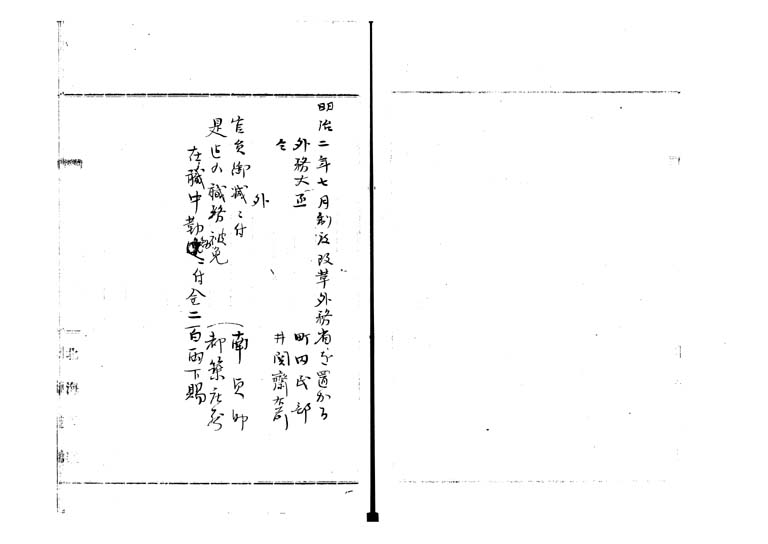 明治二年七月制度改革外務省を置かる
外務大丞 町田民部
仝 井関齋右衛門
外
官員御減ニ付 南貞助
是迄の職務被免 都築荘蔵
在職中勤労ニ付金二百両下賜
北海道